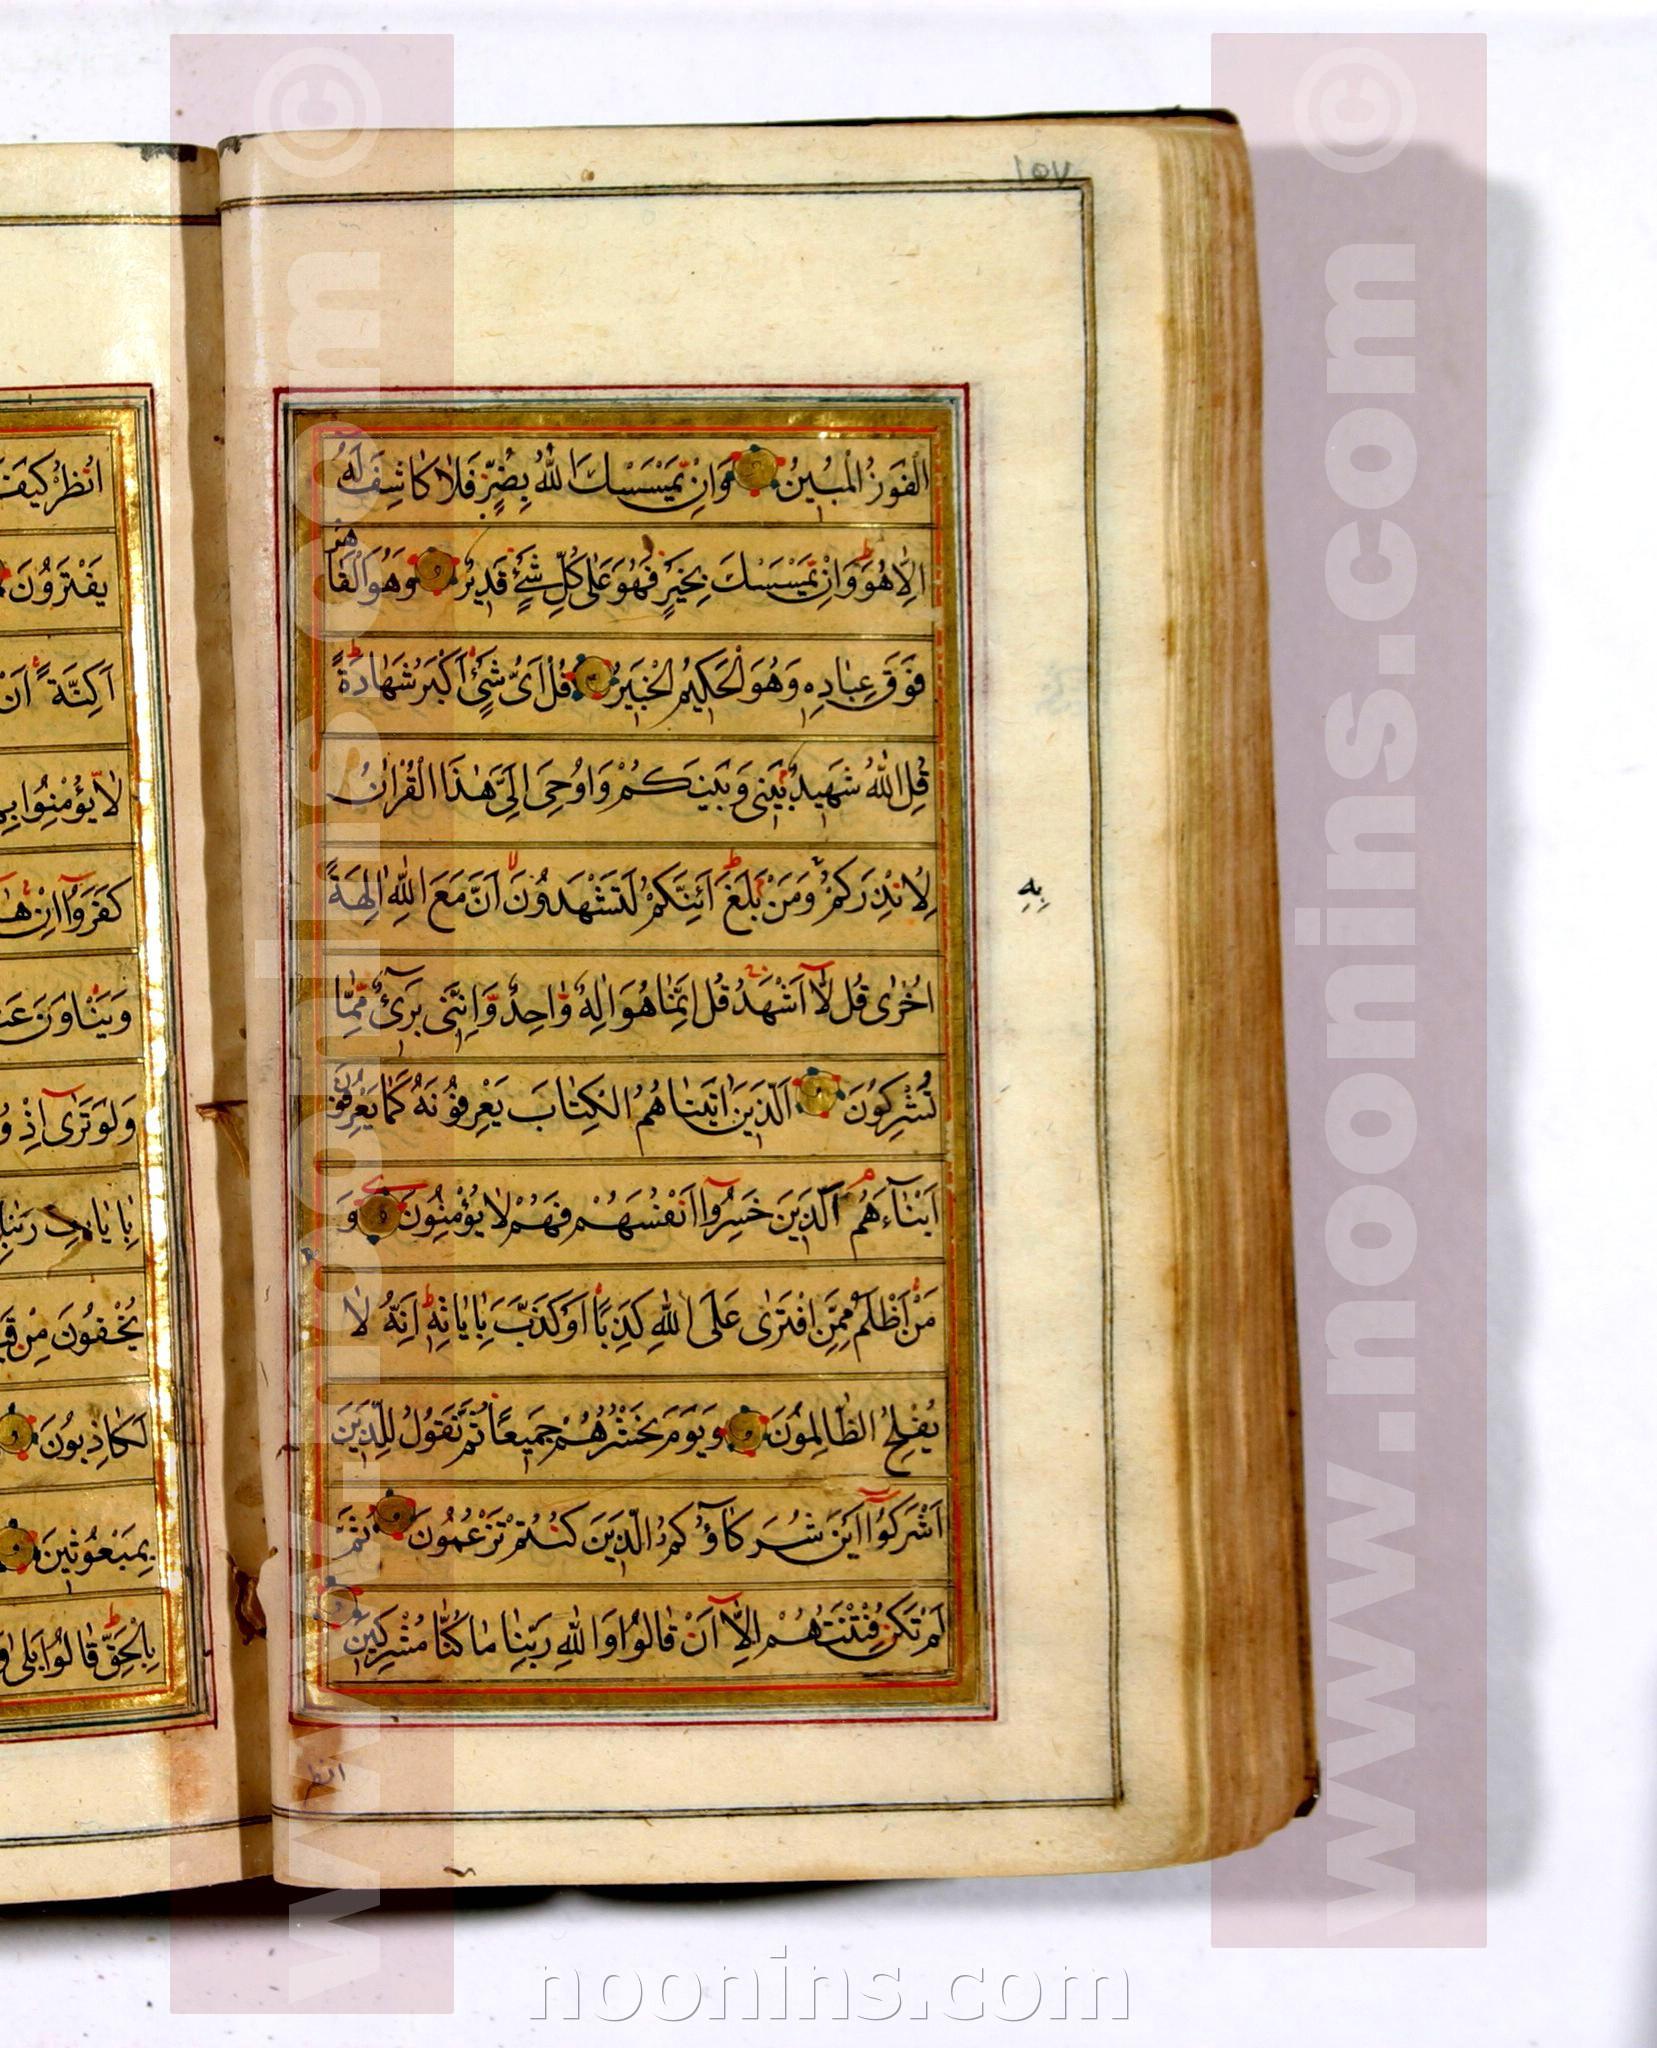 ١٥٧
الْفَوْزُ الْمُبينُ وَاِنْ يَمْسَسْكَ اللّٰهُ بِضُرٍّ فَلٰا كٰاشِفَ لَهُ
اِلّٰا هُوَ وَاِنْ يَمْسَسْكَ بِخَيْرٍ فَهُوَ عَلٰى كُلِّ شَيْءٍ قَديرٌ وَهُوَ الْقٰاهِرُ
فَوْقَ عِبٰادِهِ وَهُوَ الْحَكيمُ الْخَبيرُ قُلْ اَىُّ شَيْءٍ اَكْبَرُ شَهٰادَةً
قُلِ اللّٰهُ شَهيدٌ بَيْنى وَبَيْنَكُمْ وَاُوحِىَ اِلَىَّ هٰذَا الْقُرْاٰنُ
لِاُنْذِرَكُمْ وَمَنْ بَلَغَ اَئِنَّكُمْ لَتَشْهَدُونَ اَنَّ مَعَ اللّٰهِ اٰلِهَةً
بِهِ
اُخْرٰى قُلْ لٰا اَشْهَدُ قُلْ اِنَّمٰا هُوَ اِلٰهٌ وٰاحِدٌ وَاِنَّنى بَرىٓءٌ مِمّٰا
تُشْرِكُونَ اَلَّذينَ اٰتَيْنٰاهُمُ الْكِتٰابَ يَعْرِفُونَهُ كَمٰا يَعْرِفُونَ
اَبْنٰآءَهُمْ اَلَّذينَ خَسِرُوٓا اَنْفُسَهُمْ فَهُمْ لٰا يُؤْمِنُونَ وَ
مَنْ اَظْلَمُ مِمَّنِ افْتَرٰى عَلَى اللّٰهِ كَذِبًا اَوْ كَذَّبَ بِاٰيٰاتِهِ اِنَّهُ لٰا
يُفْلِحُ الظّٰالِمُونَ وَيَوْمَ نَحْشُرُهُمْ جَميعًا ثُمَّ نَقُولُ لِلَّذينَ
اَشْرَكُوٓا اَيْنَ شُرَكٰآؤُكُمُ الَّذينَ كُنْتُمْ تَزْعُمُونَ ثُمَّ
لَمْ تَكُنْ فِتْنَتُهُمْ اِلّٰٓا اَنْ قٰالُوا وَاللّٰهِ رَبِّنٰا مٰا كُنّٰا مُشْرِكينَ
انظر
اُنْظُرْ كَيْفَ
يَفْتَرُونَ
اَكِنَّةً اَنْ
لٰا يُؤْمِنُوا
كَفَرُوٓا اِنْ
وَيَنْاَوْنَ
وَلَوْ تَرٰى اِذْ
بِاٰيٰاتِ
يُخْفُونَ مِنْ
لَكٰاذِبُونَ
بِمَبْعُوثينَ
بِالْحَقِّ قٰالُوا بَلٰى
www.noonins.com ©
www.noonins.com ©
noonins.com